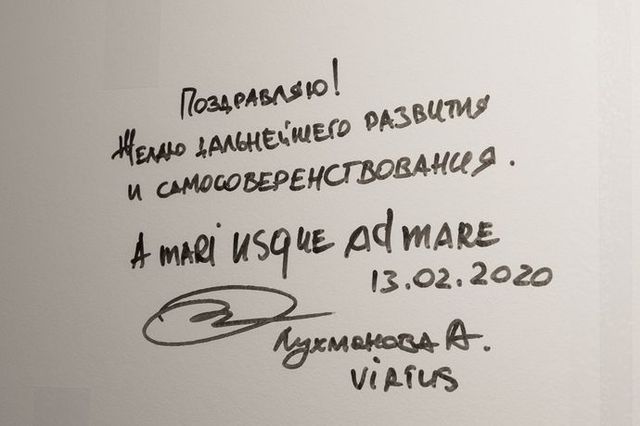 Поздравляю!
Желаю дальнейшего развития
и самосоверенствования.
A mari usque ad mare
13.02.2020
Лухманова А.
Virtus